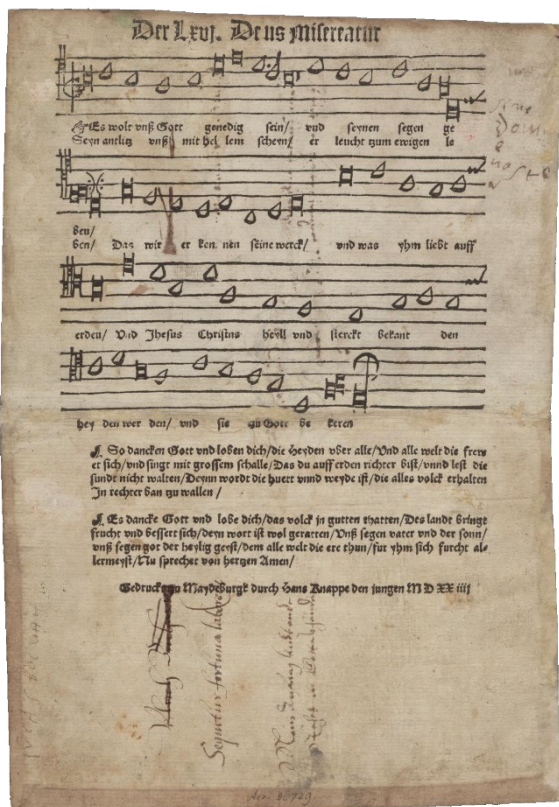 Der Lxvj. Deus Misereatur
Es wolt vnß Gott genedig sein/ vnd seynen segen ge
Seyn antlitz vnß mit hel lem scheyn/ er leucht tzum ewigen le
ben/
ben/ Das wir er ken nen seine werck/ vnd was yhm liebt auff
erden/ Vnd Jhesus Christus heyll vnd sterckt bekant den
hey den wer den/ vnd sie zu Gott be keren
¶ So dancken Gott vnd loben dich/die Heyden vber alle/Vnd alle welt die frew
et sich/vnd singt mit grossem schalle/Das du auff erden richter bist/vnnd lest die
sundt nicht walten/Deynn wordt die huert vnnd weyde ist/die alles volck erhalten
In rechter ban zu wallen/
¶ Es dancke Gott vnd lobe dich/das volck jn gutten thatten/Des landt bringt
frucht vnd bessert sich/deyn wort ist wol geratten/Vnß segen vater vnd der sonn/
vnß segen got der heylig geyst/dem alle welt die ere thun/fur yhm sich furcht al-
lermeyst/Nu sprechet von hertzen Amen/
Gedruckt zu Maydeburgk durch Hans Knappe den jungen M D XX iiij
Sequitur fortuna labore